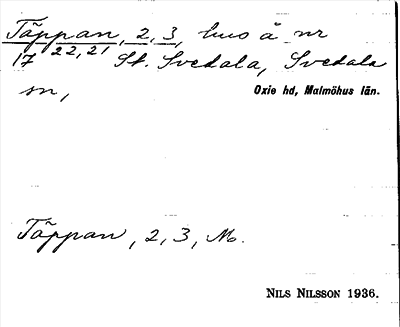 Täppan, 2, 3, hus å nr
17 22, 21 St. Svedala, Svedala
sn,
Oxie hd, Malmöhus län.
Täppan, 2, 3, No.
NILS NILSSON 1936.